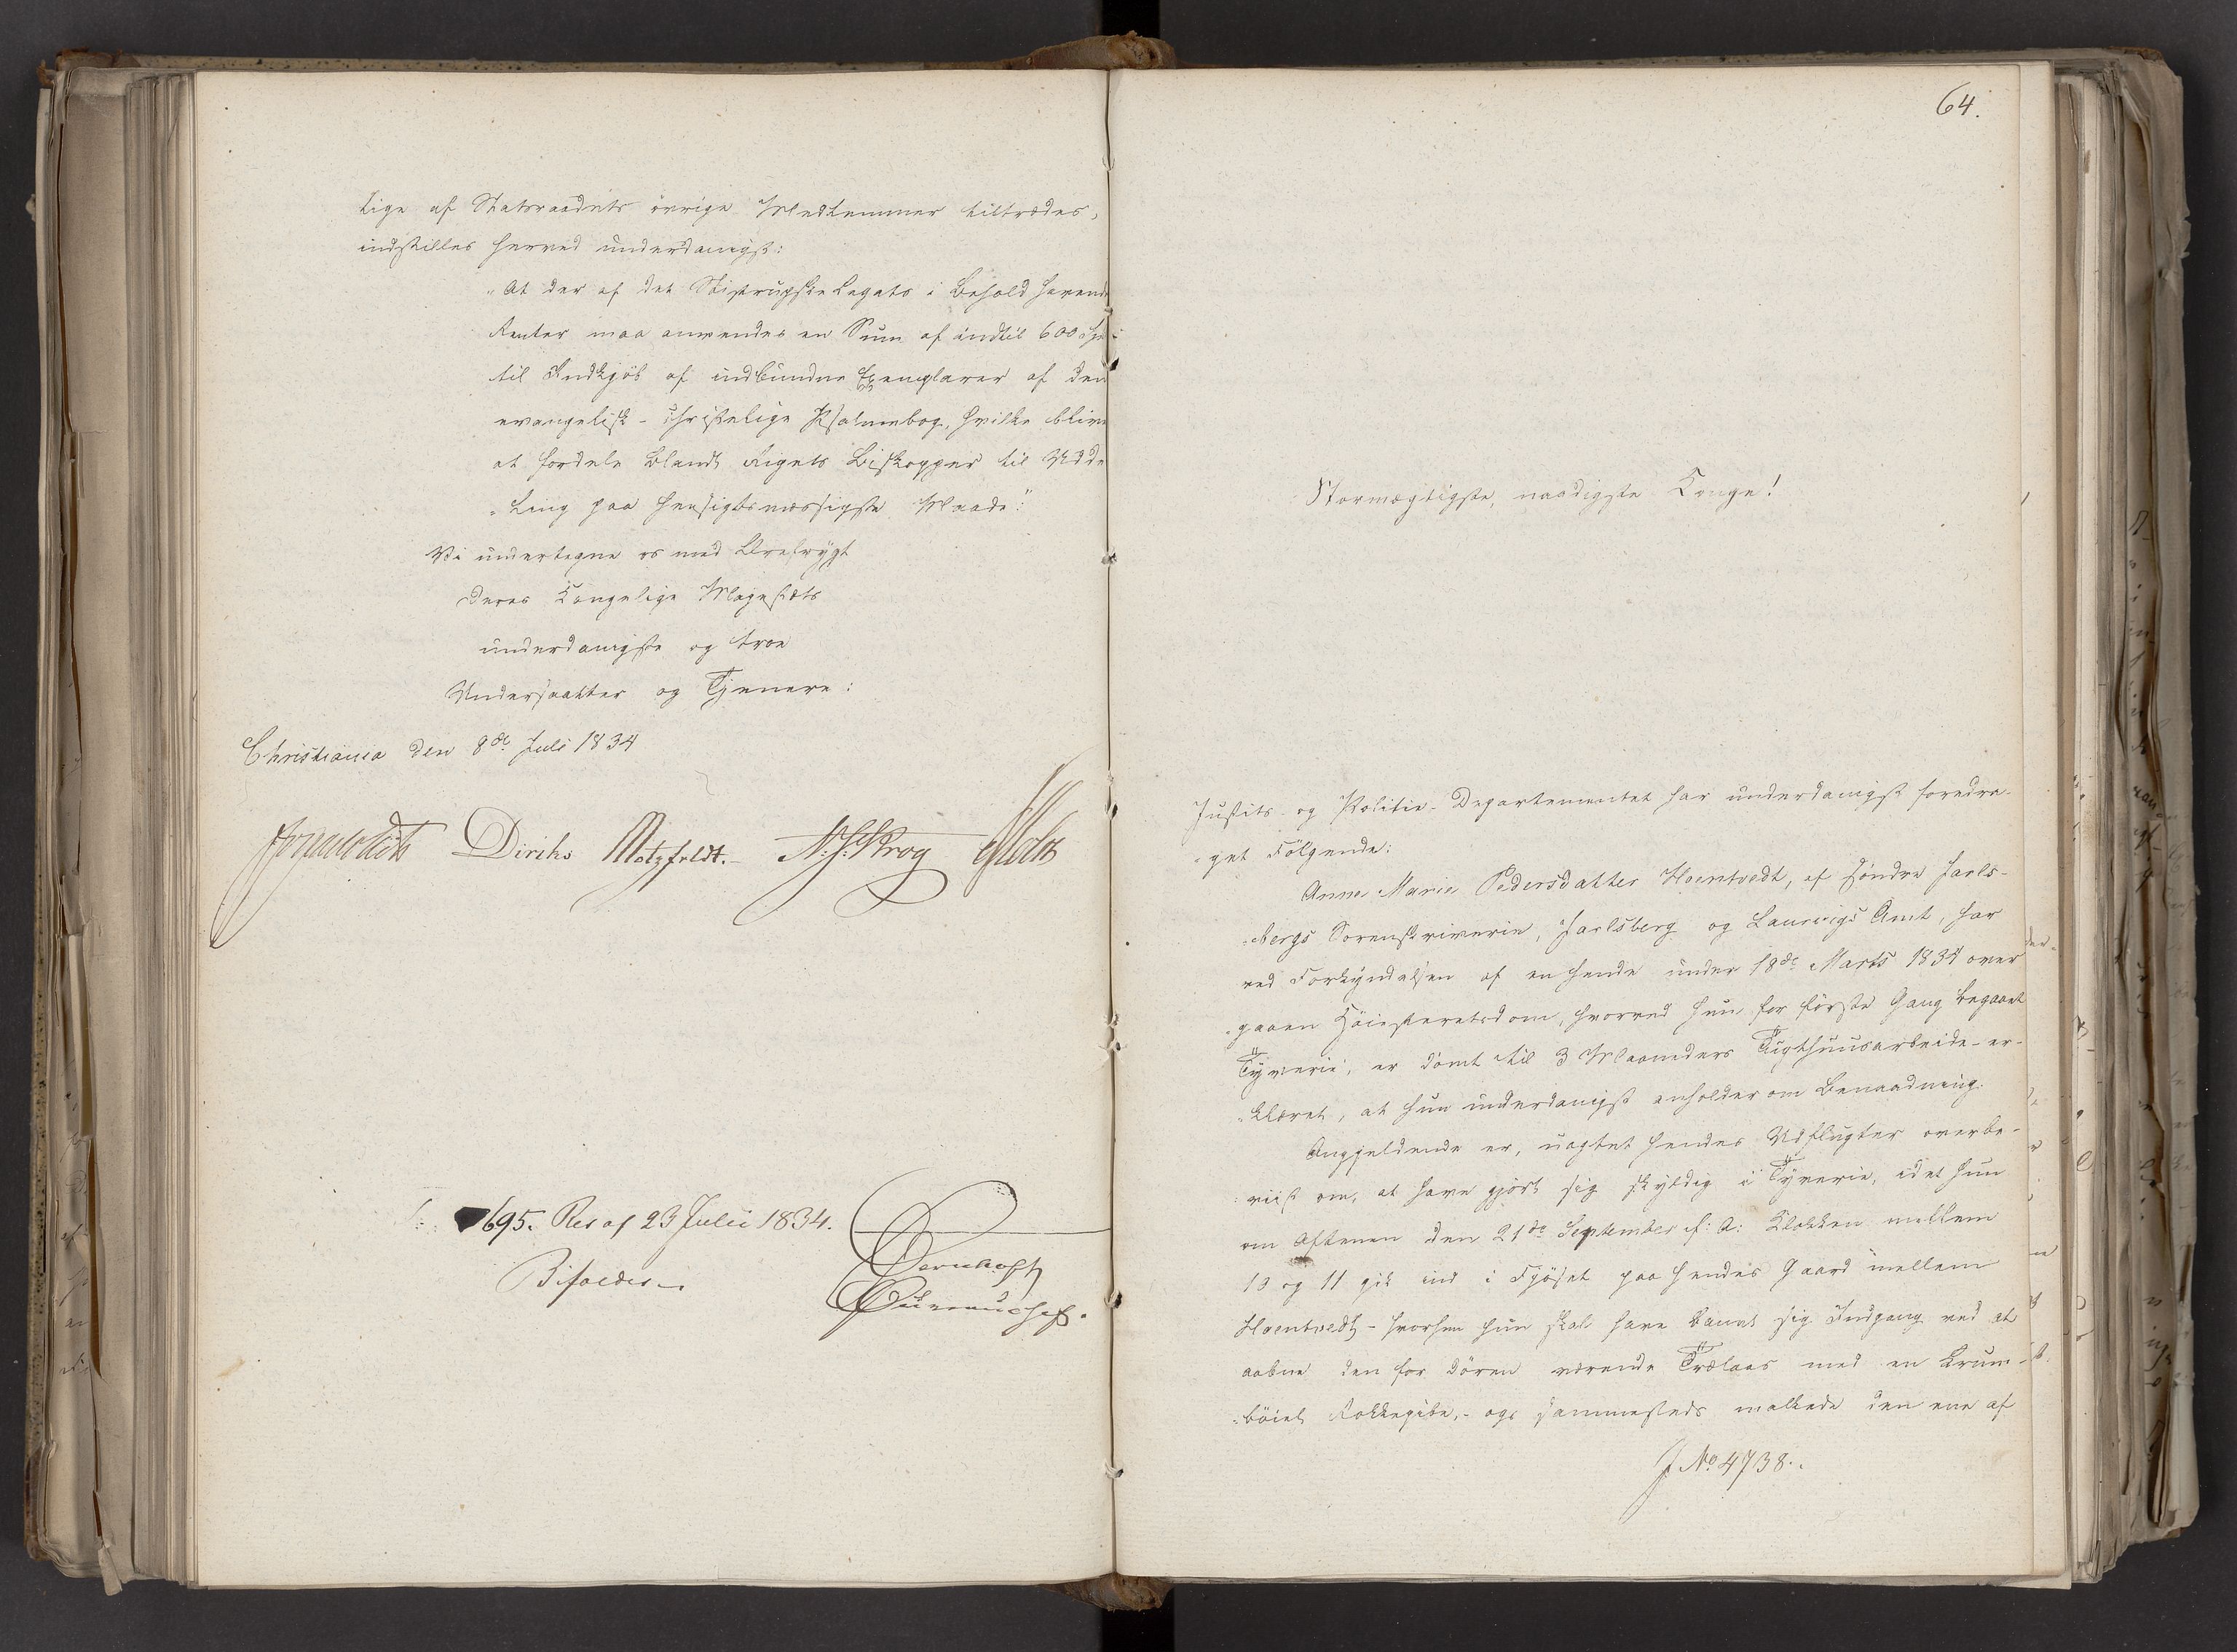 lige af Statsraadets övrige Medlemmer tiltrædes,
indstilles herved underdanigst:
"At der af det Stistrupske Legats i Behold havende
Renter maa anvendes en Sum af indtil 600 Spd
til Indkjöb af indbundne Exemplarer af den
evangelisk-christelige Psalmebog, hvilke blive
at fordele blandt Rigets Biskopper til Udde
"ling paa hensigtsmæssigste Maade."
Vi undertegne os med Ærefrygt
Deres Kongelige Majestæts
underdanigste og troe
Undersaatter og Tjenere:
Christiania den 8de Juli 1834
Diriks Motzfeldt. N. J. Krog Holst
695. Res af 23 Julii 1834.
Bifaldes
Bureauchef.
64.
Stormægtigste, naadigste Konge!
Justits- og Politie-Departementet har underdanigst foredra-
"get Fölgende:
Anne Marie Pedersdatter Hoentvedt, af söndre Jarls-
"bergs Sorenskriverie, Jarlsberg og Laurvigs Amt, har
ved Forkyndelsen af en hende under 18de Marts 1834 over
"gaaen Höiesteretsdom, hvorved hun for förste Gang begaaet
Tyverie, er dömt til 3 Maaneders Tugthuusarbeide - er-
"klæret, at hun underdanigst anholder om Benaadning.
Angjeldende er, uagtet hendes Udflugter overbe-
"viist om, at have gjort sig skyldig i Tyverie, idet hun
om Aftenen den 21de September f: A: Klokken mellem
10 og 11 gik ind i Fjöset paa hendes Gaard mellem
Hoentvedt - hvorhen hun skal have banet sig Indgang ved at
aabne den for Dören værende Trælaas med en krum-
"böiet Rokkepibe, - og sammesteds malkede den ene af
J No 4738.